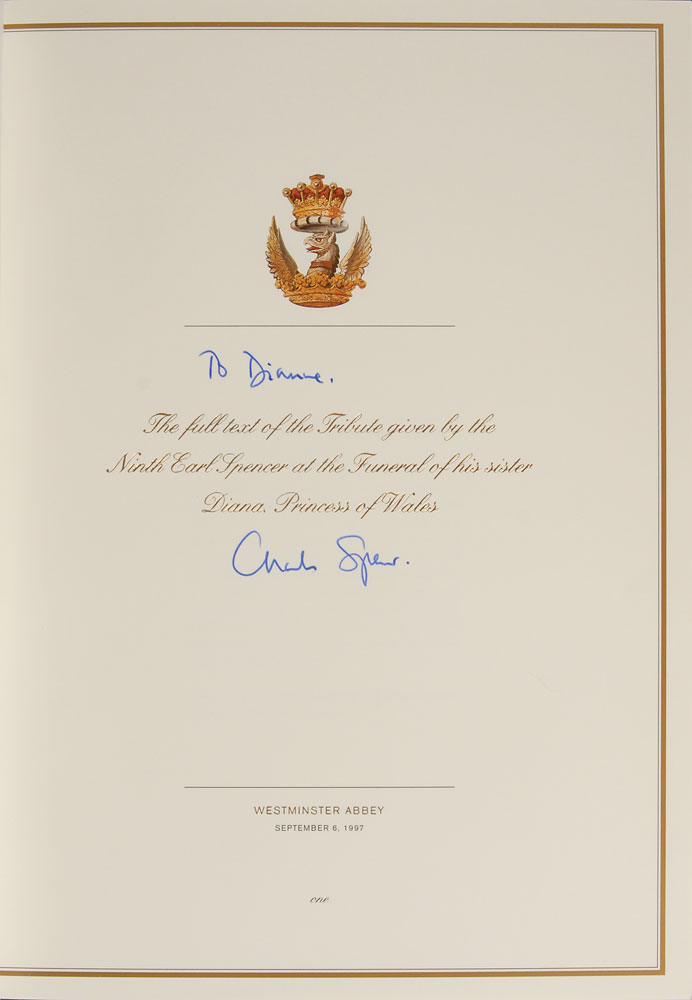 To Dianne.
The full text of the Tribute given by the
Ninth Earl Spencer at the Funeral of his sister
Diana, Princess of Wales
Charles Spencer.
WESTMINSTER ABBEY
SEPTEMBER 6, 1997
one